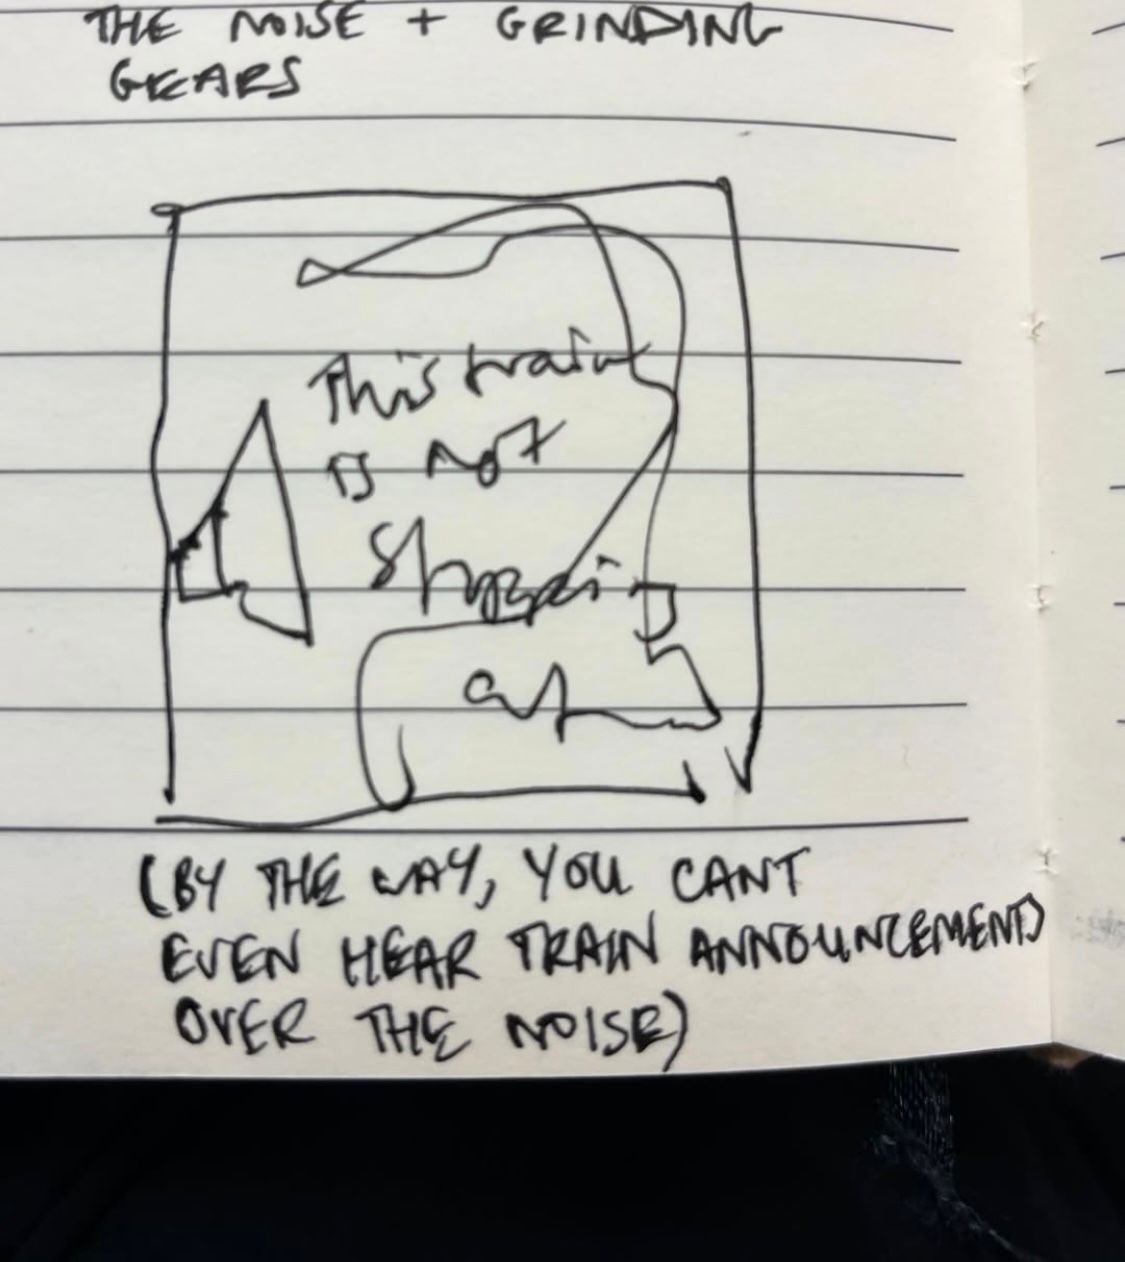 THE NOISE + GRINDING
GEARS
This train
is not
stopping
at
(BY THE WAY, YOU CANT
EVEN HEAR TRAIN ANNOUNCEMENTS
OVER THE NOISE)